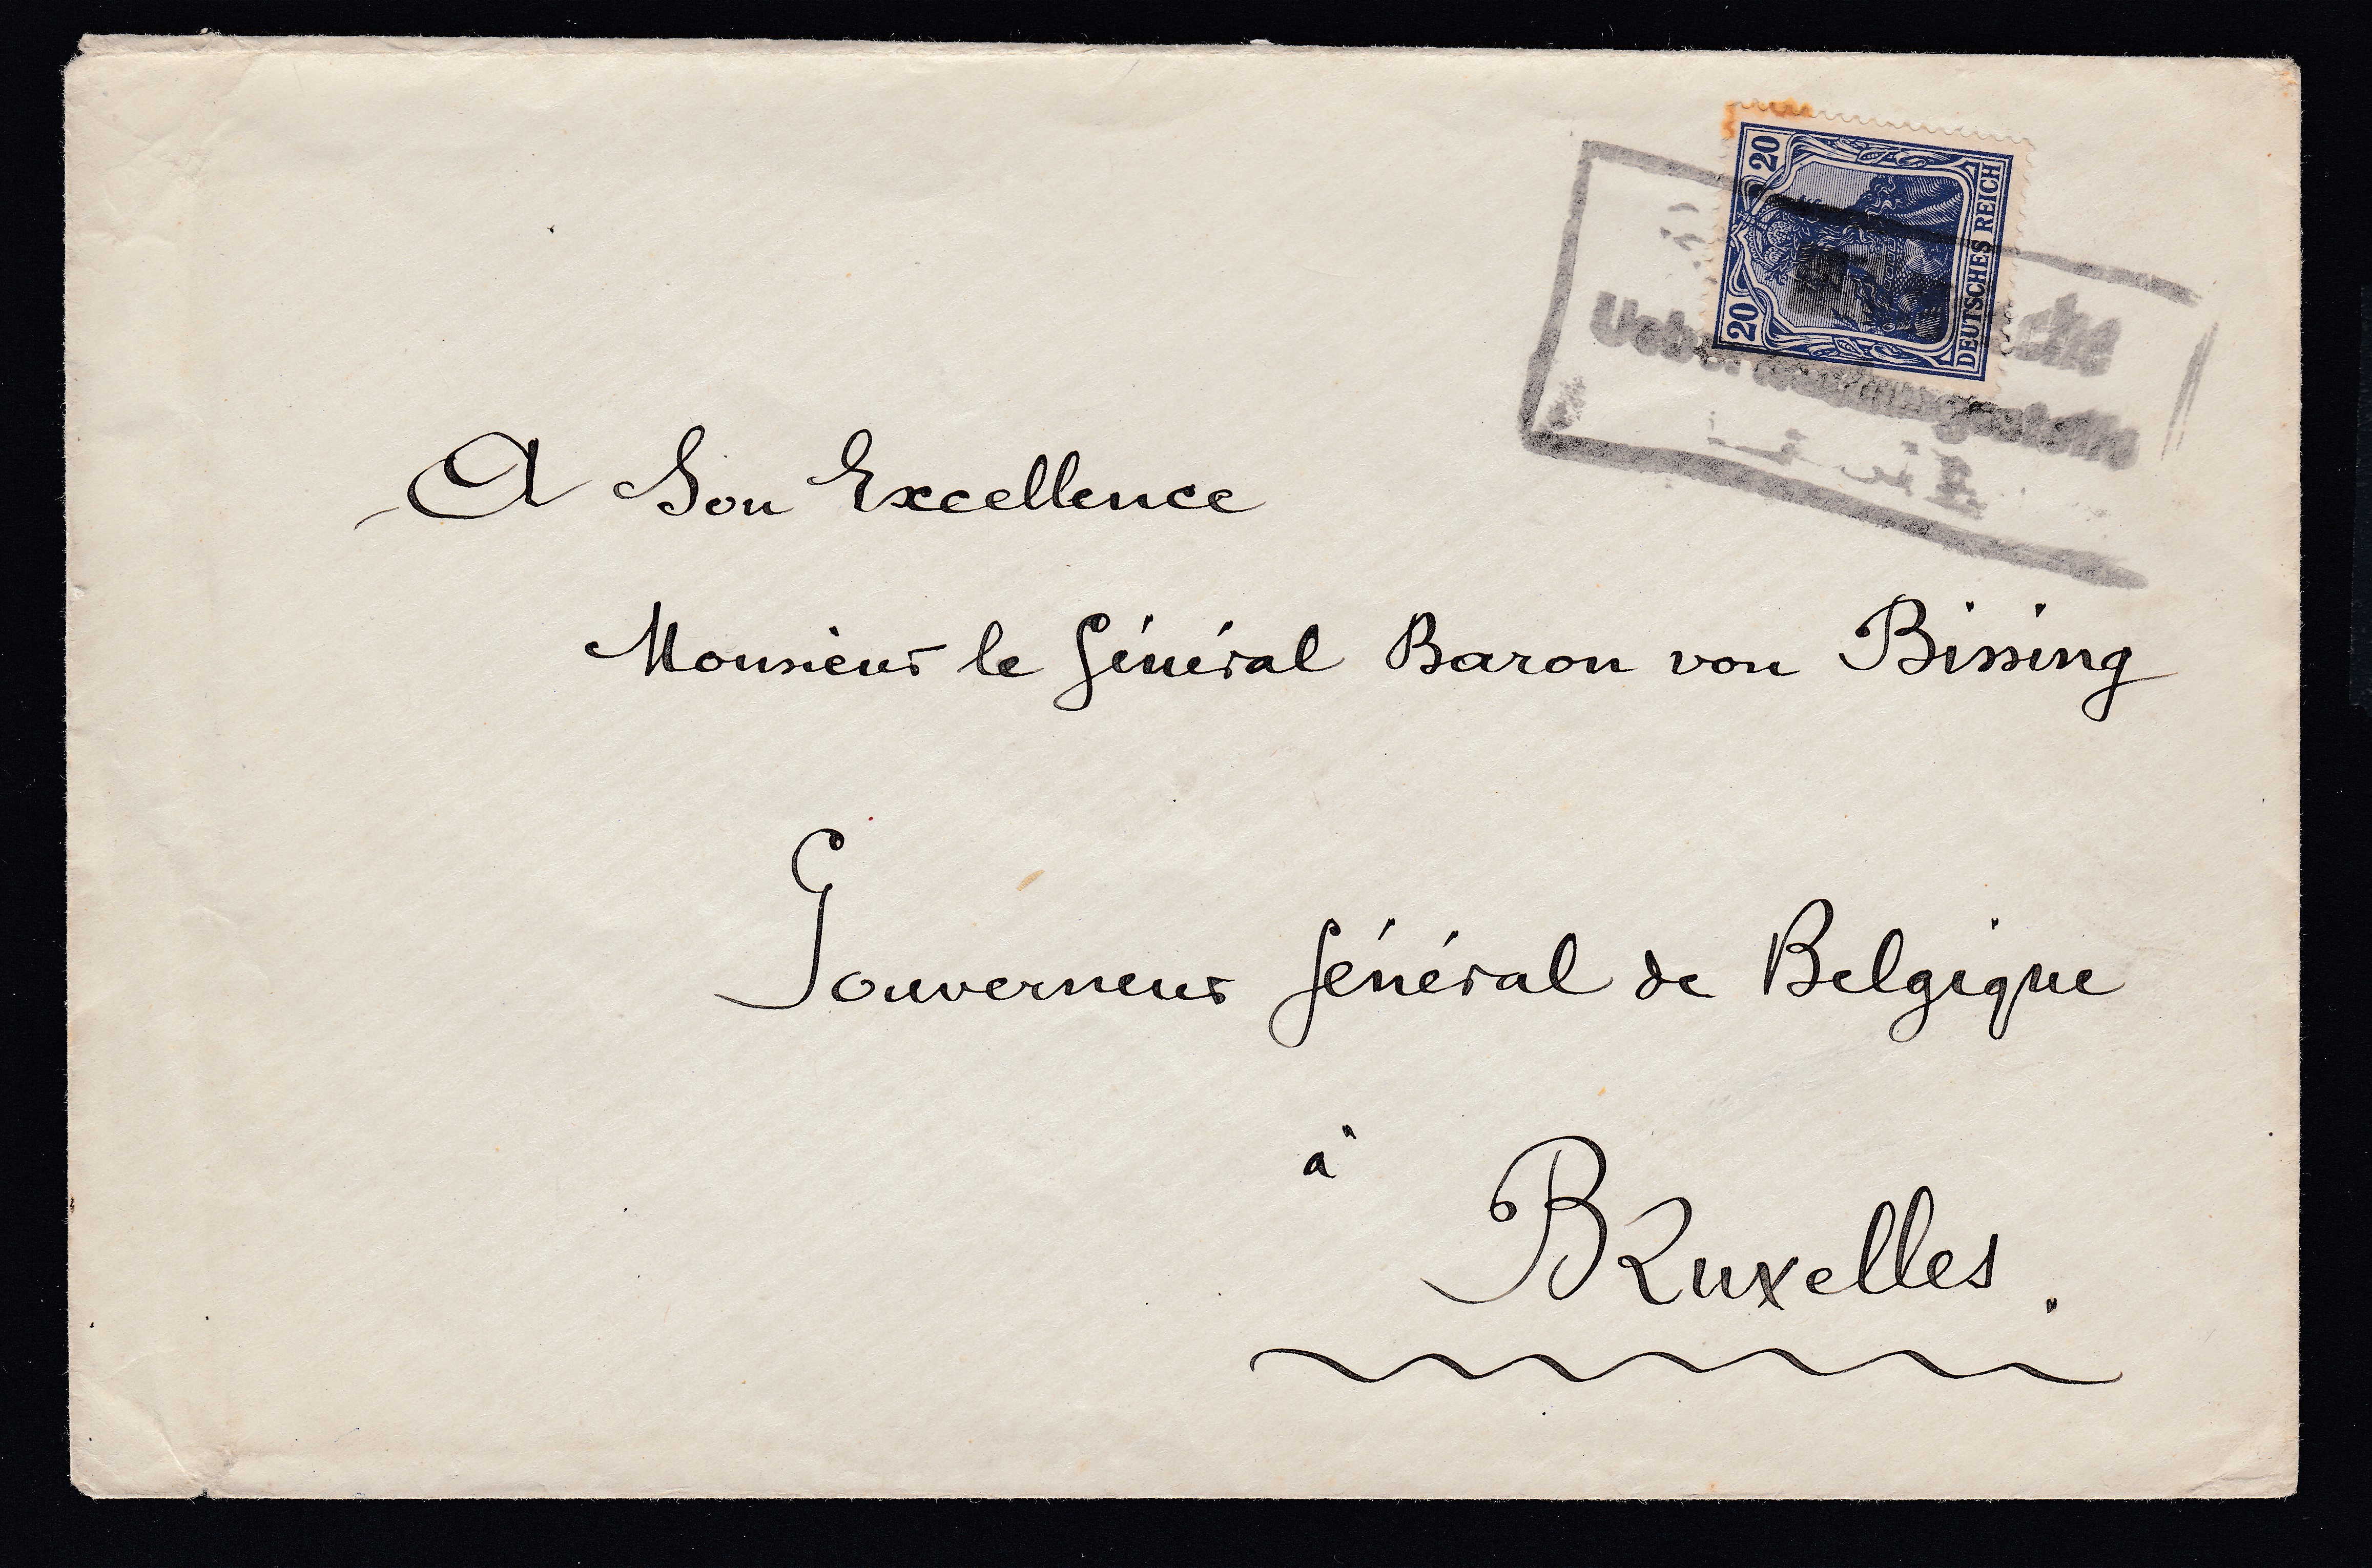 20
20
DEUTSCHES REICH
A Son Excellence
Monsieur le Général Baron von Bissing
Gouverneur Général de Belgique
à
Bruxelles.